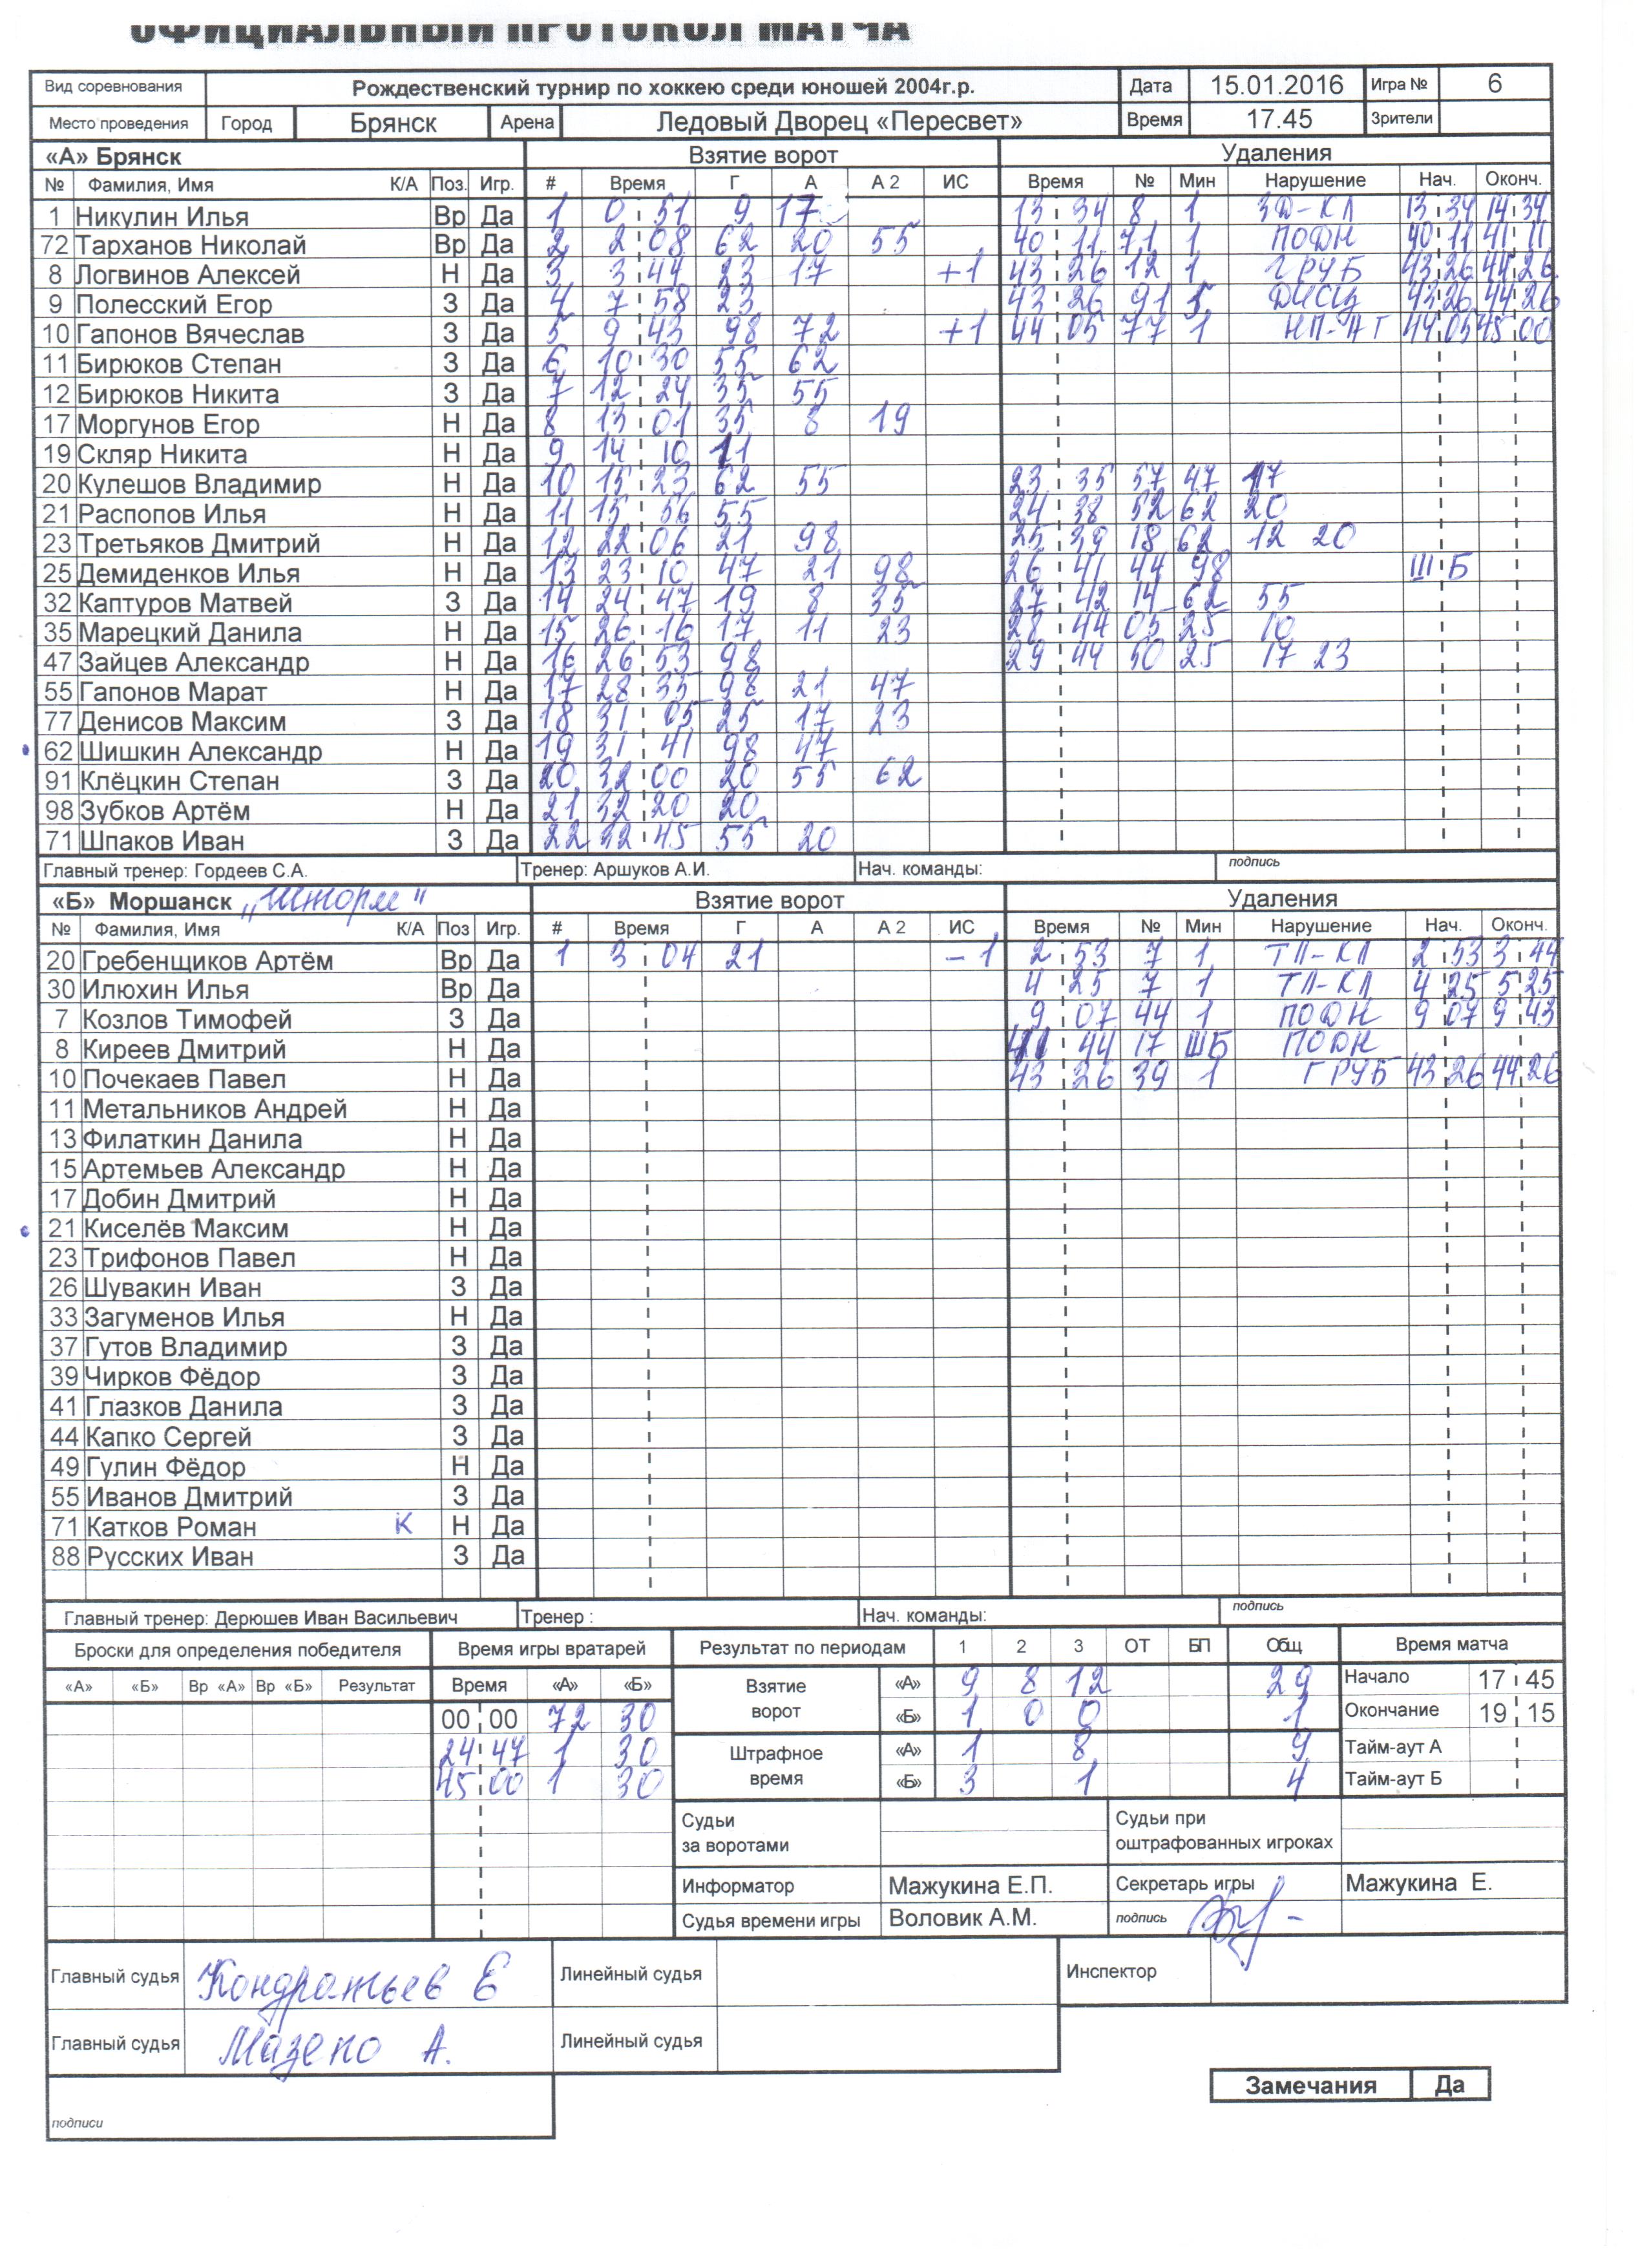 ОФИЦИАЛЬНЫЙ ПРОТОКОЛ МАТЧА
Вид соревнования Рождественский турнир по хоккею среди юношей 2004г.р. Дата 15.01.2016 Игра № 6
Место проведения Город Брянск Арена Ледовый Дворец «Пересвет» Время 17.45 Зрители
«А» Брянск Взятие ворот Удаления
№ Фамилия, Имя К/А Поз. Игр. # Время Г А А 2 ИС Время № Мин Нарушение Нач. Оконч.
1 Никулин Илья Вр Да 1 0 51 9 17 13 34 8 1 ЗД-КЛ 13 34 14 34
72 Тарханов Николай Вр Да 2 2 08 62 20 55 40 11 71 1 ПОДН 40 11 41 11
8 Логвинов Алексей Н Да 3 3 44 23 17 +1 43 26 12 1 ГРУБ 43 26 44 26
9 Полесский Егор З Да 4 7 58 23 43 26 91 5 ДИСЦ 43 26 44 26
10 Гапонов Вячеслав З Да 5 9 43 98 72 +1 44 05 77 1 НП-АТ 44 05 45 00
11 Бирюков Степан З Да 6 10 30 55 62
12 Бирюков Никита З Да 7 12 24 35 55
17 Моргунов Егор Н Да 8 13 01 35 8 19
19 Скляр Никита Н Да 9 14 10 11
20 Кулешов Владимир Н Да 10 15 23 62 55 23 35 57 47 17
21 Распопов Илья Н Да 11 15 56 55 24 38 52 62 20
23 Третьяков Дмитрий Н Да 12 22 06 21 98 25 39 18 62 12 20
25 Демиденков Илья Н Да 13 23 10 47 21 98 26 41 44 98 Ш Б
32 Каптуров Матвей З Да 14 24 47 19 8 35 27 42 14 62 55
35 Марецкий Данила Н Да 15 26 16 17 11 23 28 44 05 25 10
47 Зайцев Александр Н Да 16 26 53 98 29 44 50 25 17 23
55 Гапонов Марат Н Да 17 28 35 98 21 47
77 Денисов Максим З Да 18 31 05 25 17 23
62 Шишкин Александр Н Да 19 31 41 98 47
91 Клёцкин Степан З Да 20 32 00 20 55 62
98 Зубков Артём Н Да 21 32 20 20
71 Шпаков Иван З Да 22 32 45 55 20
Главный тренер: Гордеев С.А. Тренер: Аршуков А.И. Нач. команды: подпись
«Б» Моршанск „Шторм" Взятие ворот Удаления
№ Фамилия, Имя К/А Поз Игр. # Время Г А А 2 ИС Время № Мин Нарушение Нач. Оконч.
20 Гребенщиков Артём Вр Да 1 3 04 21 -1 2 53 7 1 ТЛ-КЛ 2 53 3 44
30 Илюхин Илья Вр Да 4 25 7 1 ТЛ-КЛ 4 25 5 25
7 Козлов Тимофей З Да 9 07 44 1 ПОДН 9 07 9 43
8 Киреев Дмитрий Н Да 41 44 17 ШБ ПОДН
10 Почекаев Павел Н Да 43 26 39 1 ГРУБ 43 26 44 26
11 Метальников Андрей Н Да
13 Филаткин Данила Н Да
15 Артемьев Александр Н Да
17 Добин Дмитрий Н Да
21 Киселёв Максим Н Да
23 Трифонов Павел Н Да
26 Шувакин Иван З Да
33 Загуменов Илья Н Да
37 Гутов Владимир З Да
39 Чирков Фёдор З Да
41 Глазков Данила З Да
44 Капко Сергей З Да
49 Гулин Фёдор Н Да
55 Иванов Дмитрий З Да
71 Катков Роман К Н Да
88 Русских Иван З Да
Главный тренер: Дерюшев Иван Васильевич Тренер : Нач. команды: подпись
Броски для определения победителя Время игры вратарей Результат по периодам 1 2 3 ОТ БП Общ Время матча
«А» «Б» Вр «А» Вр «Б» Результат Время «А» «Б» Взятие ворот «А» 9 8 12 29 Начало 17 45
00 00 72 30 «Б» 1 0 0 1 Окончание 19 15
24 47 1 30 Штрафное время «А» 1 8 9 Тайм-аут А
45 00 1 30 «Б» 3 1 4 Тайм-аут Б
Судьи за воротами Судьи при оштрафованных игроках
Информатор Мажукина Е.П. Секретарь игры Мажукина Е.
Судья времени игры Воловик А.М. подпись
Главный судья Кондратьев Е Линейный судья Инспектор
Главный судья Мазепо А. Линейный судья
Замечания Да
подписи